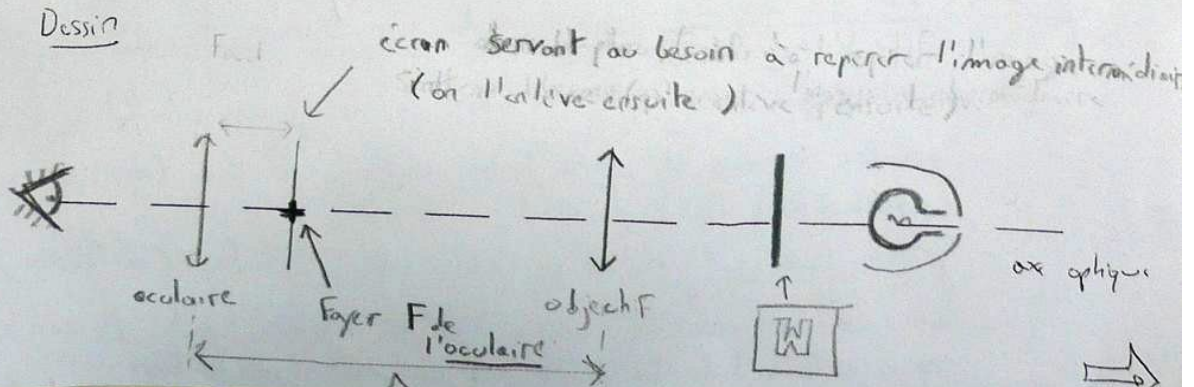 Dessin
écran servant au besoin à repérer l'image intermédiair
(on l'enlève ensuite)
oculaire
Foyer F de
l'oculaire
objectif
W
axe optique